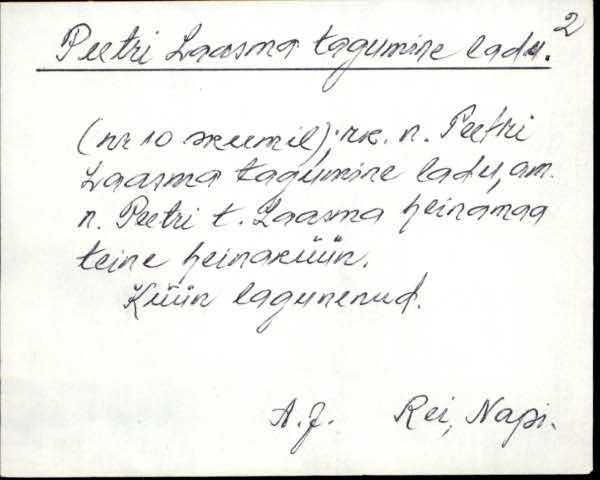 2
Peetri Laasma tagumine ladu.
(nr 10 skeemil); rk. n. Peetri
Laasma tagumine ladu, am.
n. Peetri t. Laasma heinamaa
teine heinaküün.
Küün lagunenud.
A.J. Rei, Napi.